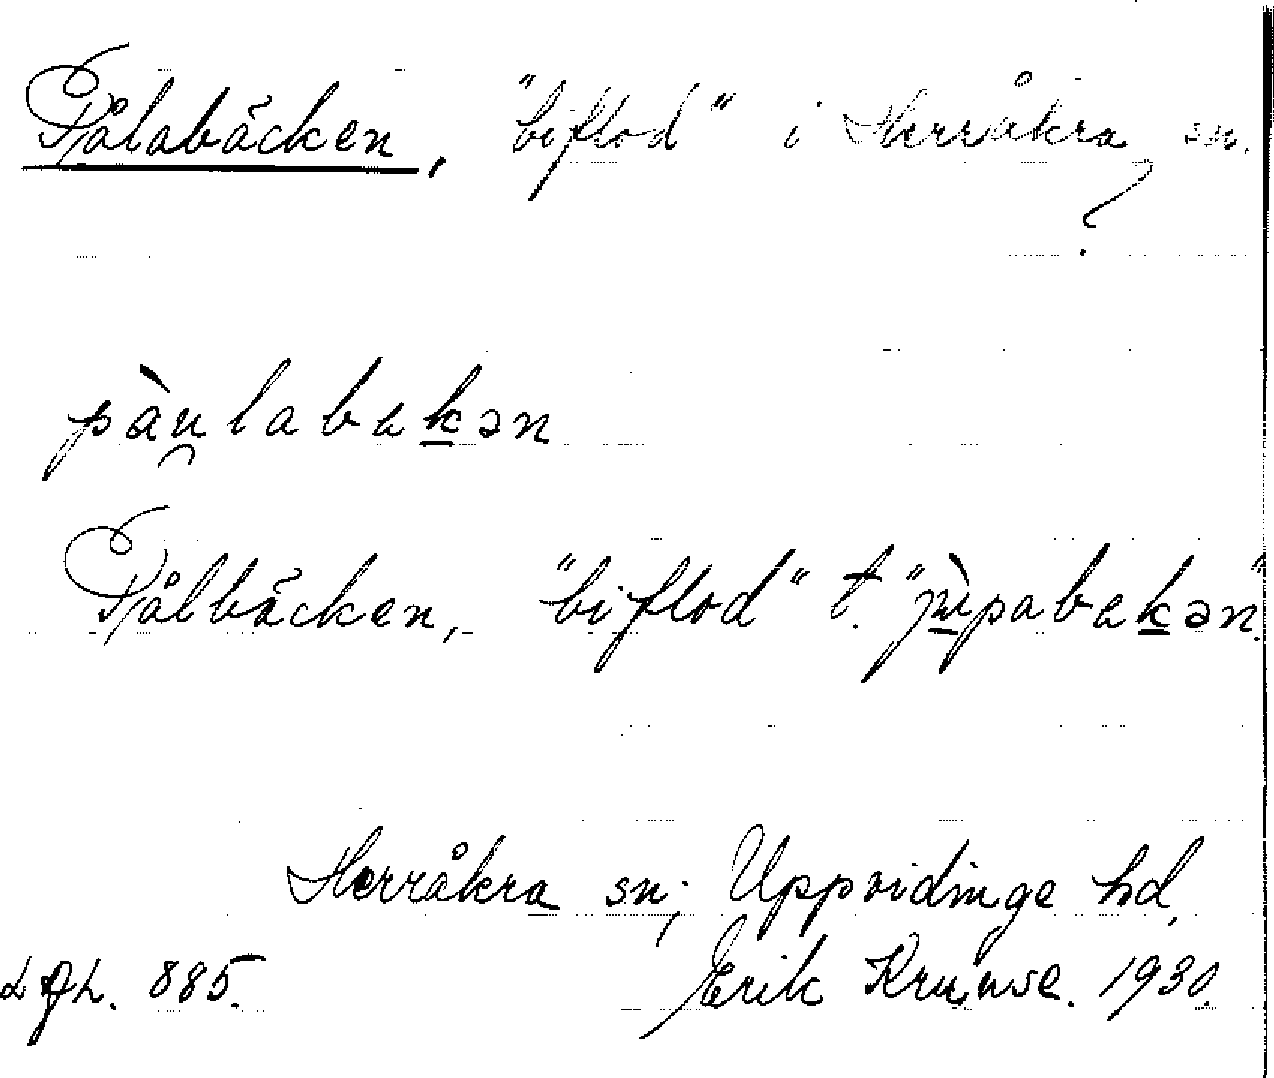 Pålabäcken, "biflod" i Herråkra sn.
?
pàu̯labak̲ən
Pålbäcken, "biflod" t. "jùpabak̲ən"
Herråkra sn; Uppvidinge hd,
885. Erik Kruuse. 1930.